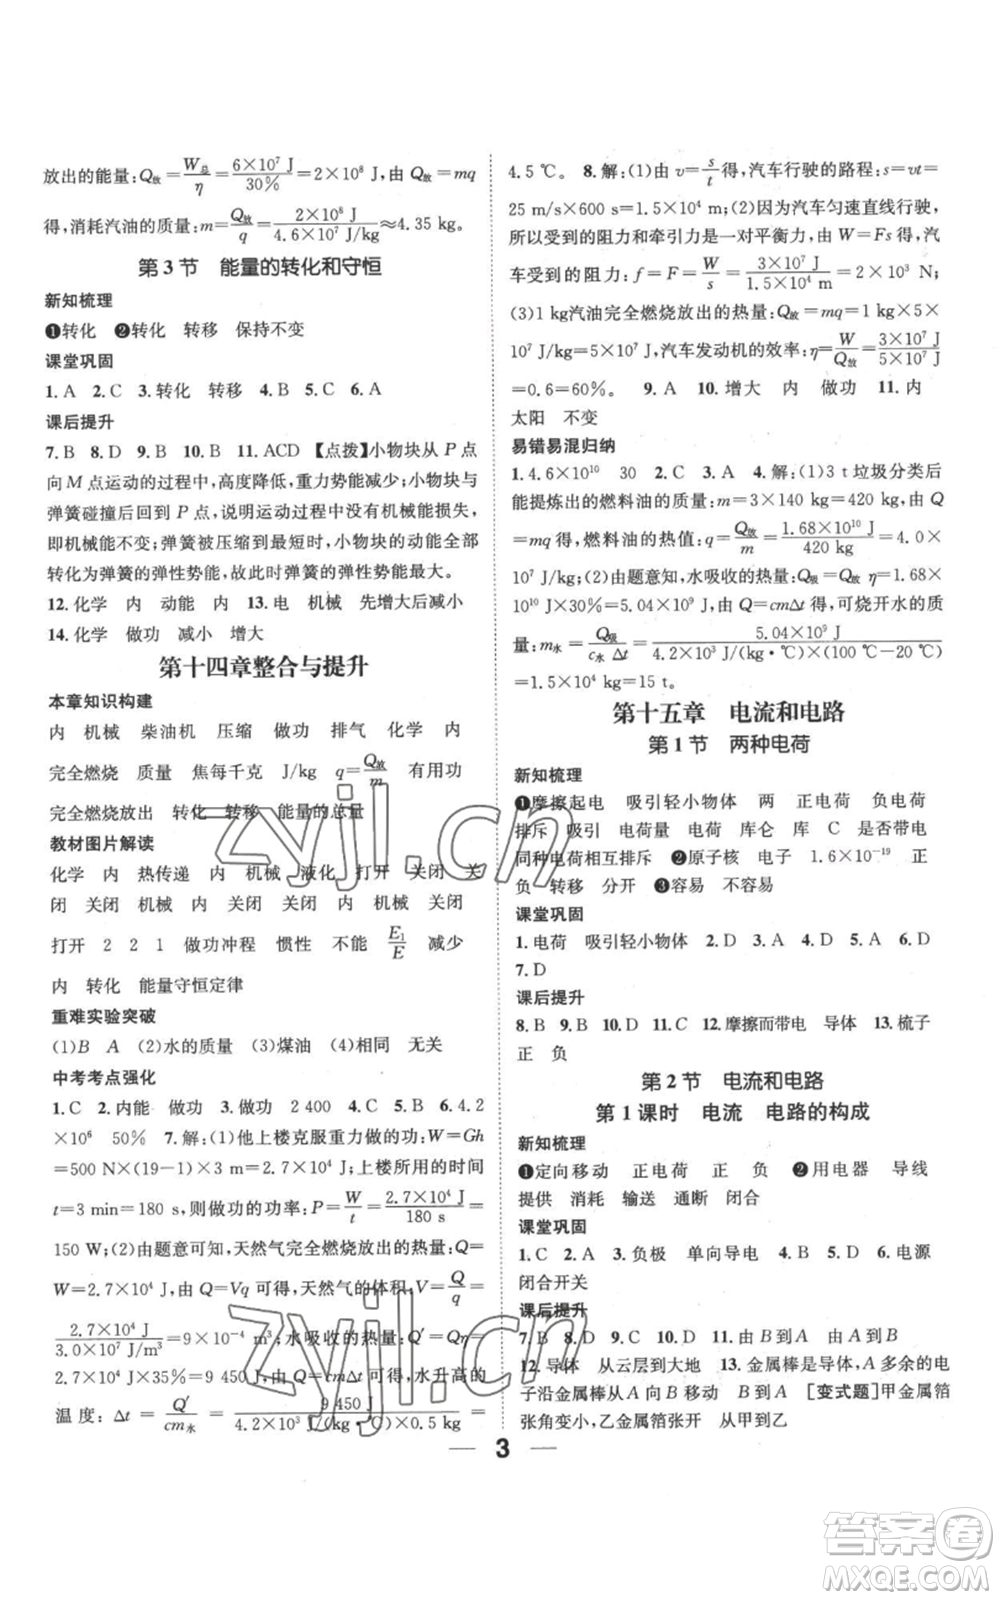 放出的能量:Q放=W总/η=6×10⁷ J/30%=2×10⁸ J,由 Q放=mq
得,消耗汽油的质量:m=Q放/q=2×10⁸ J/4.6×10⁷ J/kg≈4.35 kg。
第 3 节 能量的转化和守恒
新知梳理
❶转化 ❷转化 转移 保持不变
课堂巩固
1. A 2. C 3. 转化 转移 4. B 5. C 6. A
课后提升
7. B 8. D 9. B 10. B 11. ACD 【点拨】小物块从 P 点
向 M 点运动的过程中,高度降低,重力势能减少。小物块与
弹簧碰撞后回到 P 点,说明运动过程中没有机械能损失,
即机械能不变;弹簧被压缩到最短时,小物块的动能全部
转化为弹簧的弹性势能,故此时弹簧的弹性势能最大。
12. 化学 内 动能 内 13. 电 机械 先增大后减小
14. 化学 做功 减小 增大
第十四章整合与提升
本章知识构建
内 机械 柴油机 压缩 做功 排气 化学 内
完全燃烧 质量 焦每千克 J/kg q=Q放/m 有用
完全燃烧放出 转化 转移 能量的总量
教材图片解读
化学 内 热传递 内 机械 液化 打开 关闭 关
闭 关闭 机械 内 关闭 关闭 内 机械 关闭
打开 2 2 1 做功冲程 惯性 不能 E₁/E 减少
内 转化 能量守恒定律
重难实验突破
(1)B A (2)水的质量 (3)煤油 (4)相同 无关
中考考点强化
1. C 2. 内能 做功 3. 做功 2 400 4. C 5. B 6. 4.2
×10⁶ 50% 7. 解:(1)他上楼克服重力做的功:W=Gh
=500 N×(19-1)×3 m=2.7×10⁴ J;上楼所用的时间
t=3 min=180 s,则他做功的功率:P=W/t=2.7×10⁴ J/180 s=
150 W;(2)由题意可知,天然气完全燃烧放出的热量:Q=
W=2.7×10⁴ J,由 Q=Vq 可得,天然气的体积:V=Q/q=
2.7×10⁴ J/3.0×10⁷ J/m³=9×10⁻⁴ m³;水吸收的热量:Q′=Qη=
2.7×10⁴ J×35%=9 450 J,由 Q=cmΔt 可得,水升高的
温度:Δt=Q′/cm水=9 450 J/4.2×10³ J/(kg·℃)×0.5 kg=
4.5 ℃。 8. 解:(1)由 v=s/t得,汽车行驶的路程:s=vt=
25 m/s×600 s=1.5×10⁴ m;(2)因为汽车匀速直线行驶,
所以受到的阻力和牵引力是一对平衡力,由 W=Fs 得,汽
车受到的阻力:f=F=W/s=3×10⁷ J/1.5×10⁴ m=2×10³ N;
(3)1 kg汽油完全燃烧放出的热量:Q放=mq=1 kg×5×
10⁷ J/kg=5×10⁷ J,汽车发动机的效率:η=W/Q放=3×10⁷ J/5×10⁷ J
=0.6=60%。 9. A 10. 增大 内 做功 11. 内
太阳 不变
易错易混归纳
1. 4.6×10¹⁰ 30 2. C 3. A 4. 解:(1)3 t 垃圾分类后
能提炼出的燃料油的质量:m=3×140 kg=420 kg,由 Q
=mq 得,燃料油的热值:q=Q放/m=1.68×10¹⁰ J/420 kg=4.0×
10⁷ J/kg;(2)由题意知,水吸收的热量:Q吸=Q放 η=1.68×
10¹⁰ J×30%=5.04×10⁹ J,由 Q=cmΔt 得,可烧开水的质
量:m水=Q吸/c水 Δt=5.04×10⁹ J/4.2×10³ J/(kg·℃)×(100 ℃-20 ℃)
=1.5×10⁴ kg=15 t。
第十五章 电流和电路
第 1 节 两种电荷
新知梳理
❶摩擦起电 吸引轻小物体 两 正电荷 负电荷
排斥 吸引 电荷量 电荷 库仑 库 C 是否带电
同种电荷相互排斥 ❷原子核 电子 1.6×10⁻¹⁹ 正
负 转移 分开 ❸容易 不容易
课堂巩固
1. 电荷 吸引轻小物体 2. D 3. A 4. D 5. A 6. D
7. D
课后提升
8. B 9. B 10. D 11. C 12. 摩擦而带电 导体 13. 梳子
正 负
第 2 节 电流和电路
第 1 课时 电流 电路的构成
新知梳理
❶定向移动 正电荷 正 负 ❷用电器 导线
提供 消耗 输送 通断 闭合
课堂巩固
1. C 2. A 3. 负极 单向导电 4. B 5. D 6. 电源
闭合开关
课后提升
7. B 8. D 9. C 10. D 11. 由 B 到 A 由 A 到 B
12. 导体 从云层到大地 13. 金属棒是导体,A 多余的电
子沿金属棒从 A 向 B 移动 [变式题]甲金属箔
张角变小,乙金属箔张开 从甲到乙
3
zyjl.cn
zyjl.cn
答案圈
MXQE.COM